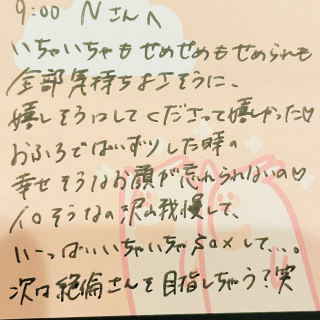 9:00 Nさんへ
いちゃいちゃもせめせめもせめられも
全部気持ちよさそうに、
嬉しそうにしてくださって嬉しかった♡
おふろでぱいずりした時の
幸せそうなお顔が忘れられないの♡
イロそうなの沢山我慢して、
いーっぱいいちゃいちゃsexして...。
次は絶倫さんを目指しちゃう?笑